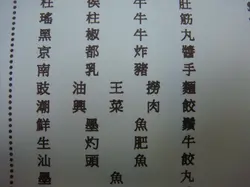 柱侯牛肚
瑤柱牛筋
黑椒牛丸
京都炸醬
南乳豬手
豉油王撈麵
潮興菜肉餃
鮮墨魚鬚
生灼肥牛
汕頭魚餃
墨魚丸